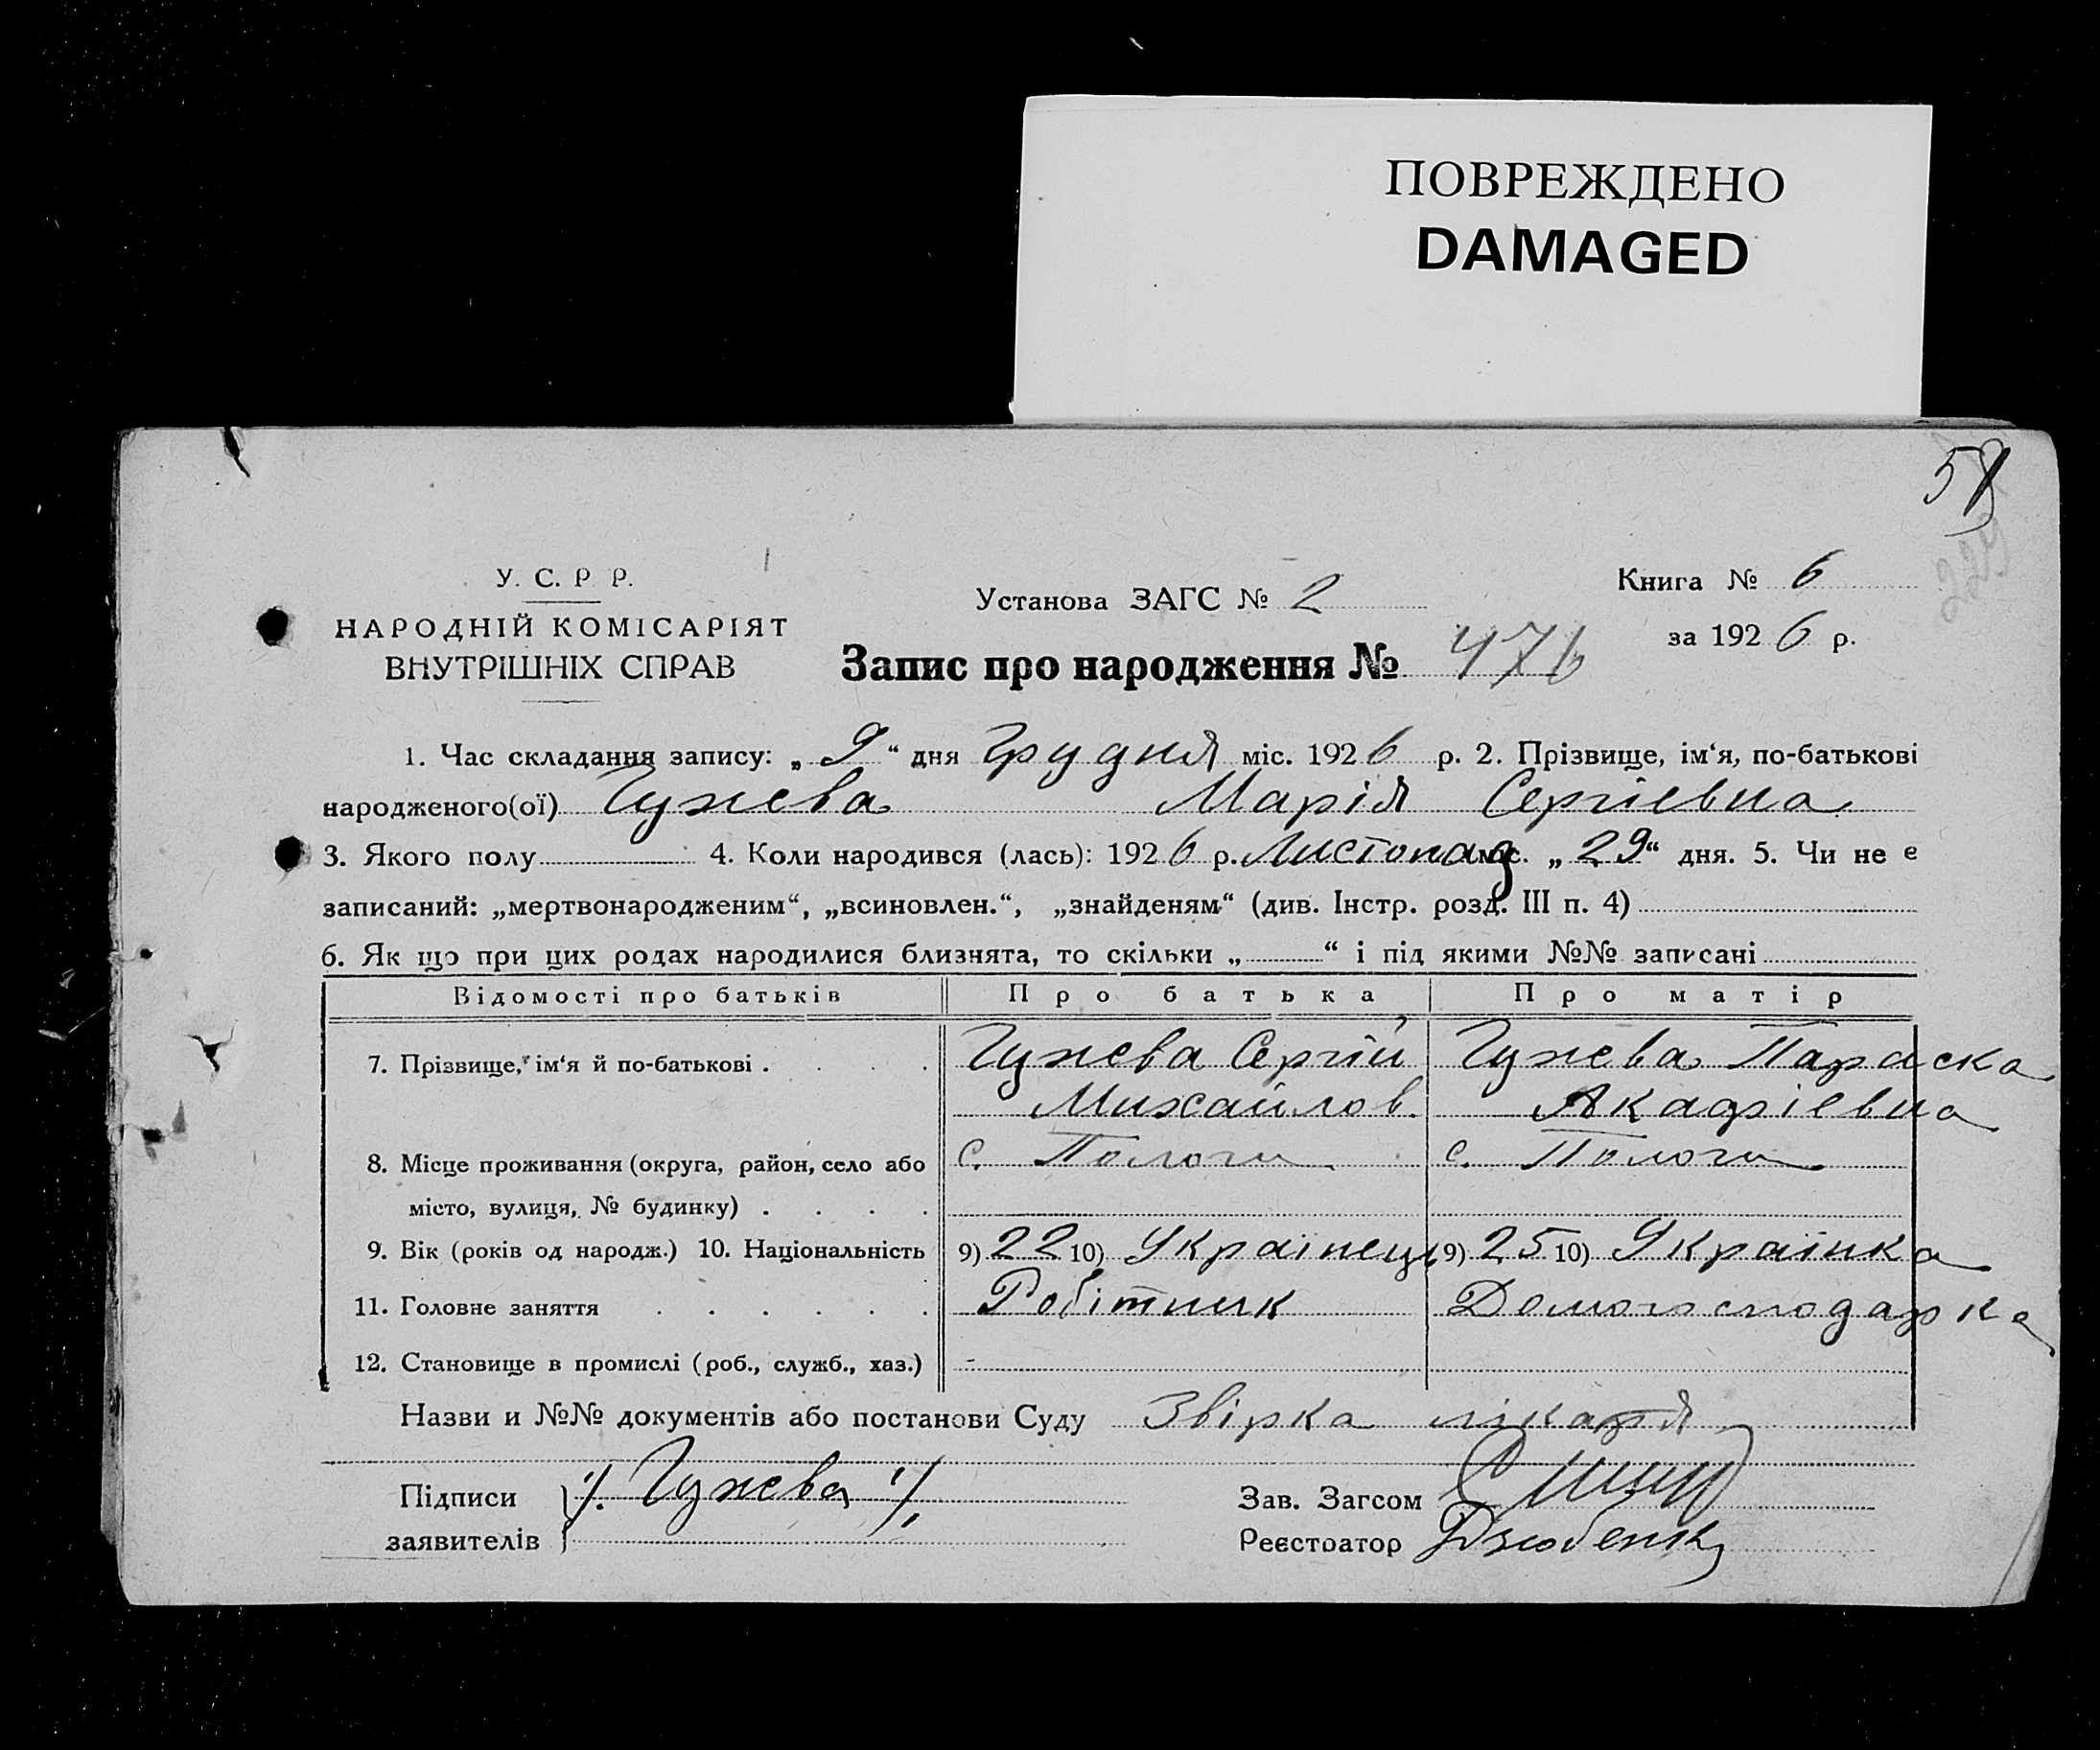 ПОВРЕЖДЕНО
DAMAGED
У. С. Р Р.
НАРОДНІЙ КОМІСАРІЯТ
ВНУТРІШНІХ СПРАВ
Установа ЗАГС № 2
Книга № 6
за 1926 р.
Запис про народження № 476
1. Час складання запису: „9“ дня Грудня міс. 1926 р. 2. Прізвище, ім‘я, по-батькові
народженого(ої) Гужева Марія Сергіевна
3. Якого полу 4. Коли народився (лась): 1926 р. Листопад міс. „29“ дня. 5. Чи не є
записаний: „мертвонародженим“, „всиновлен.“, „знайденям“ (див. Інстр. розд. III п. 4)
6. Як що при цих родах народилися близнята, то скільки „ “ і під якими №№ записані
Відомості про батьків Про батька Про матір
7. Прізвище, ім‘я й по-батькові . . . . Гужева Сергій Гужева Параска
Михайлов. Акадріевна
8. Місце проживання (округа, район, село або с. Пологи с. Пологи
місто, вулиця, № будинку) . . . .
9. Вік (років од народж.) 10. Національність 9) 22 10) Українець 9) 25 10) Українка
11. Головне заняття . . . . . . Робітник Домогосподарка
12. Становище в промислі (роб., служб., хаз.) -
Назви и №№ документів або постанови Суду Звірка лікаря
Підписи Гужева Зав. Загсом
заявителів Реєстратор Дзюбенко